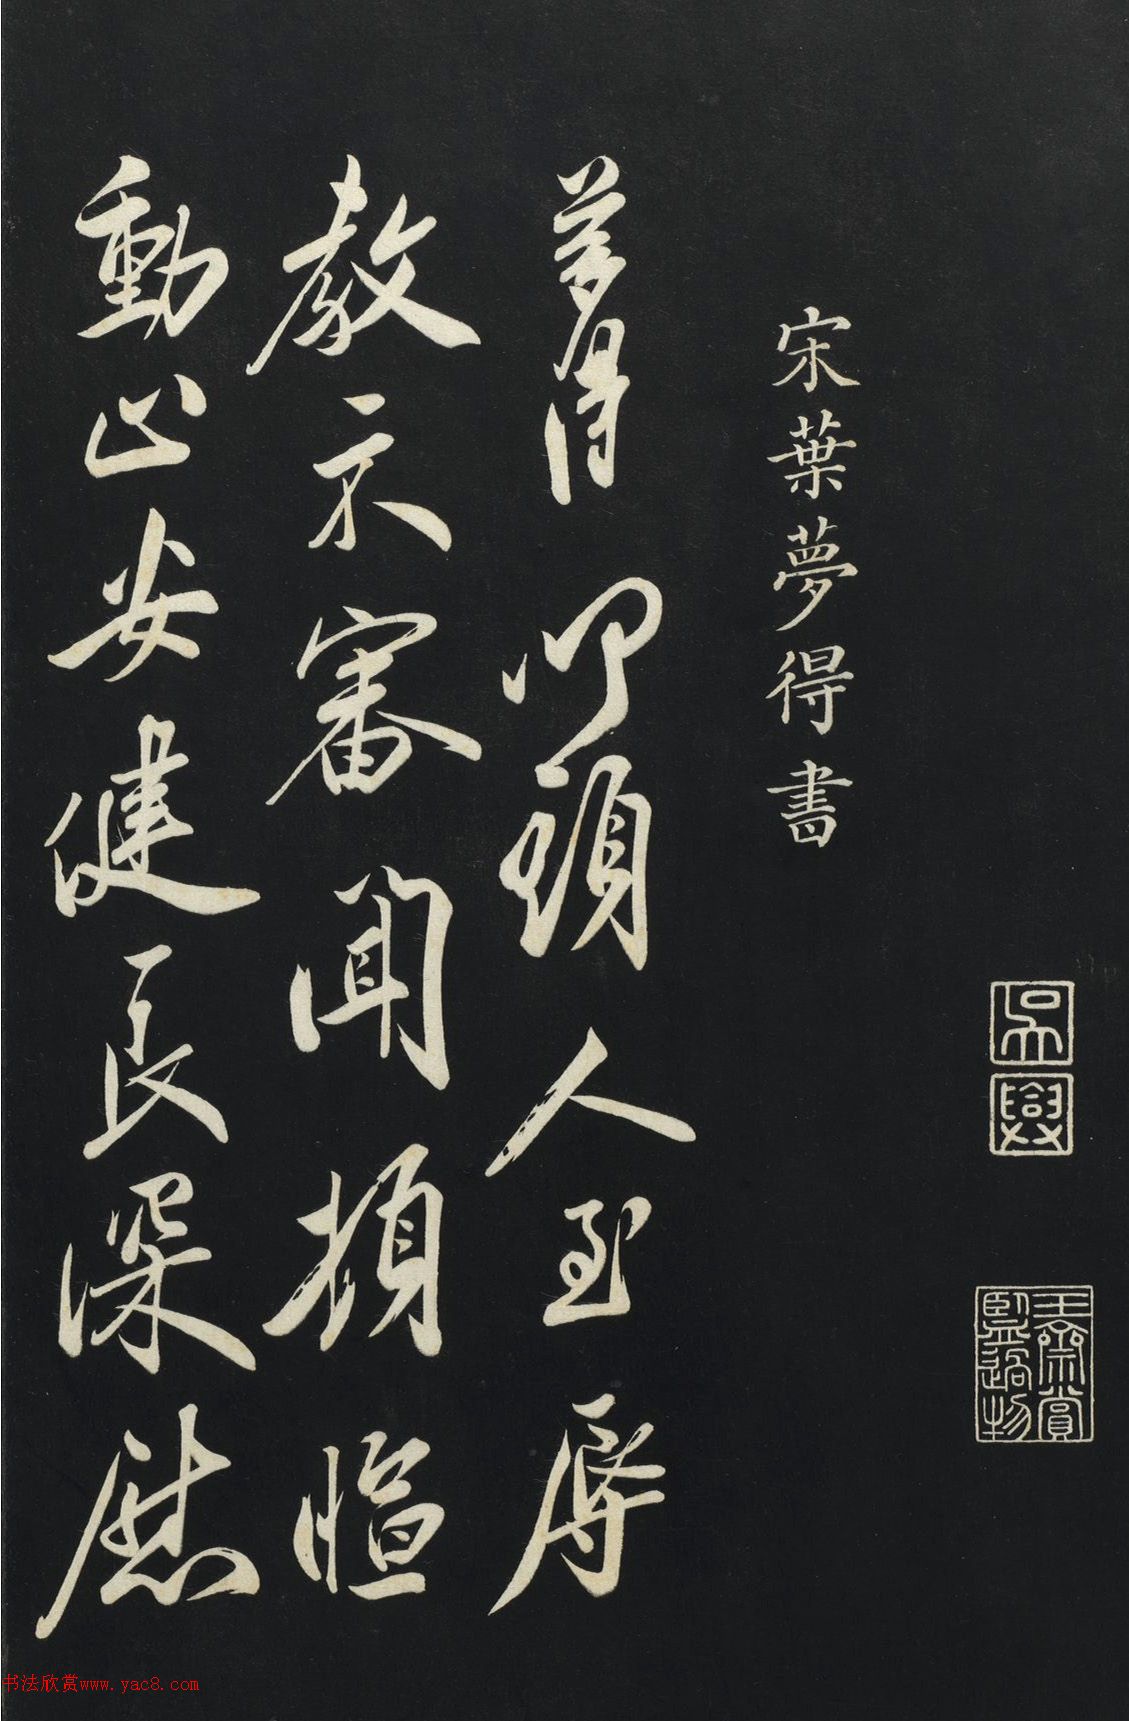 宋葉夢得書
夢得 叩頭人至辱
教示審聞
動止安健良深慰
吳興
書法欣赏www.yac8.com